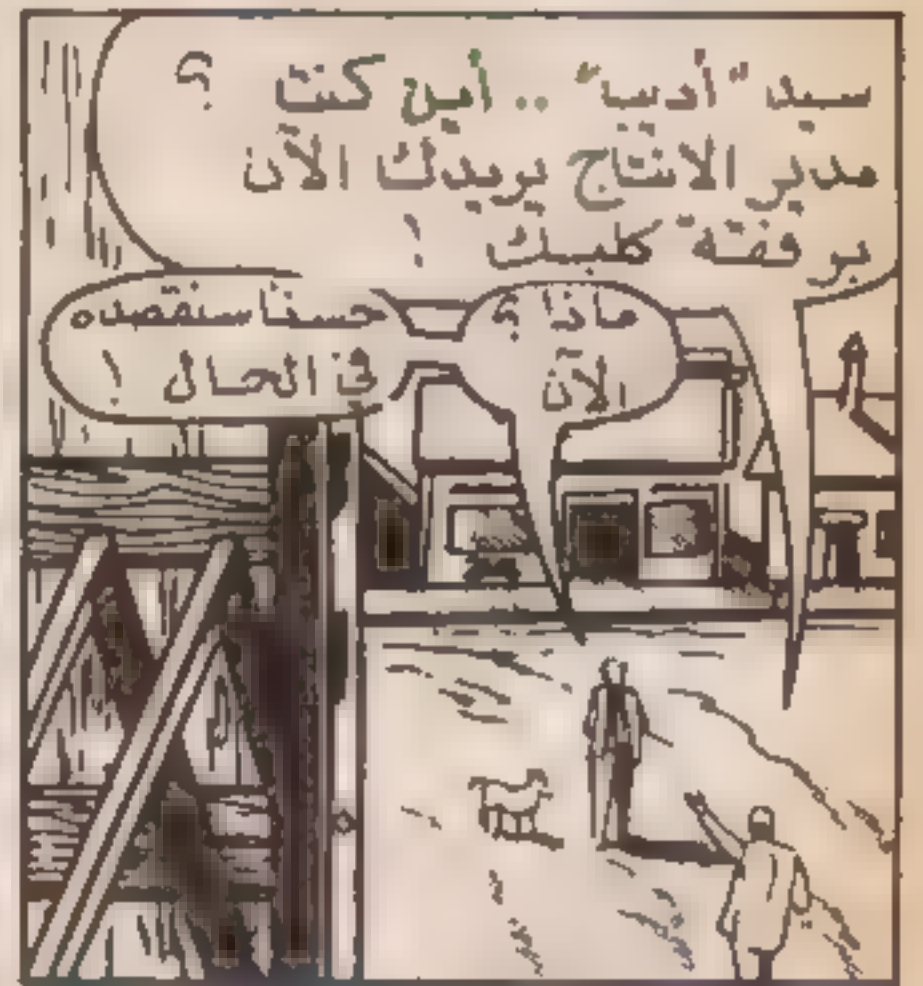 سيد "أديب" .. أين كنت ؟
مدير الانتاج يريدك الآن
برفقة كلبك !
ماذا ؟
الآن
حسنا سنقصده
في الحال !